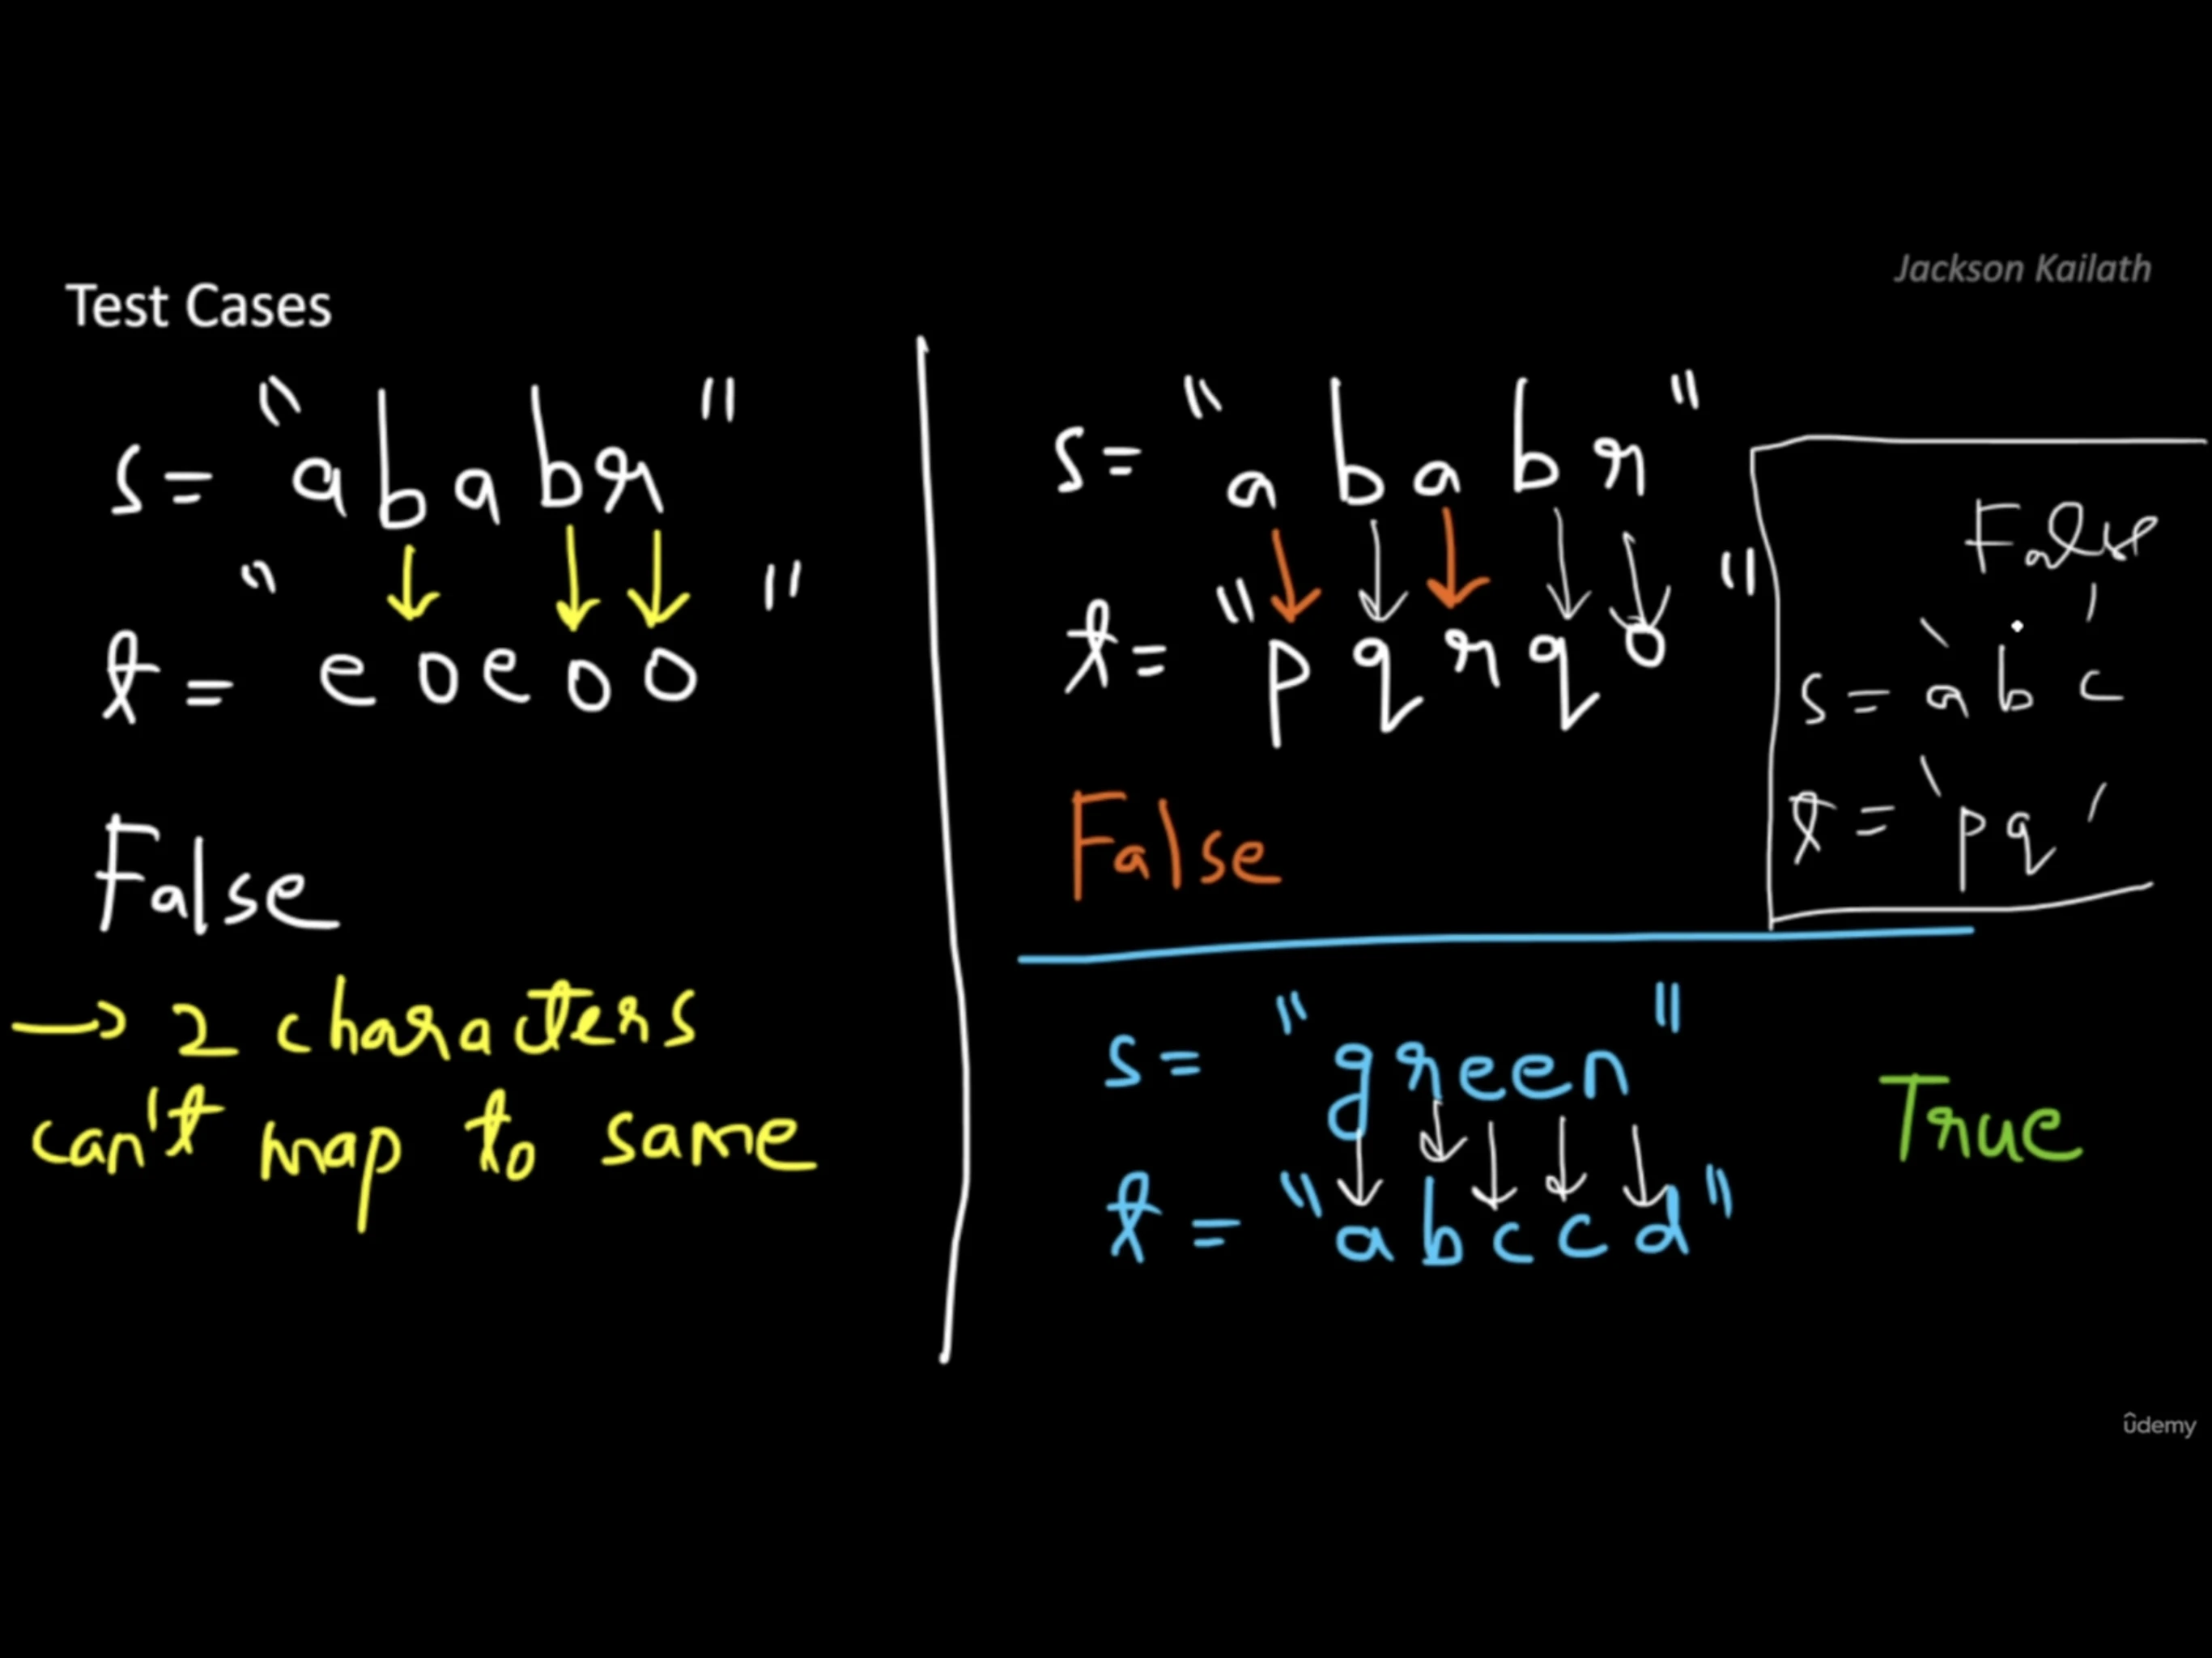 Jackson Kailath
Test Cases
s = "ababr"
t = "eoeoo"
False
→ 2 characters
can't map to same
s = "ababr"
t = "pqrqo"
False
False
s = 'abc'
t = 'pq'
s = "green"
t = "abccd"
True
ûdemy